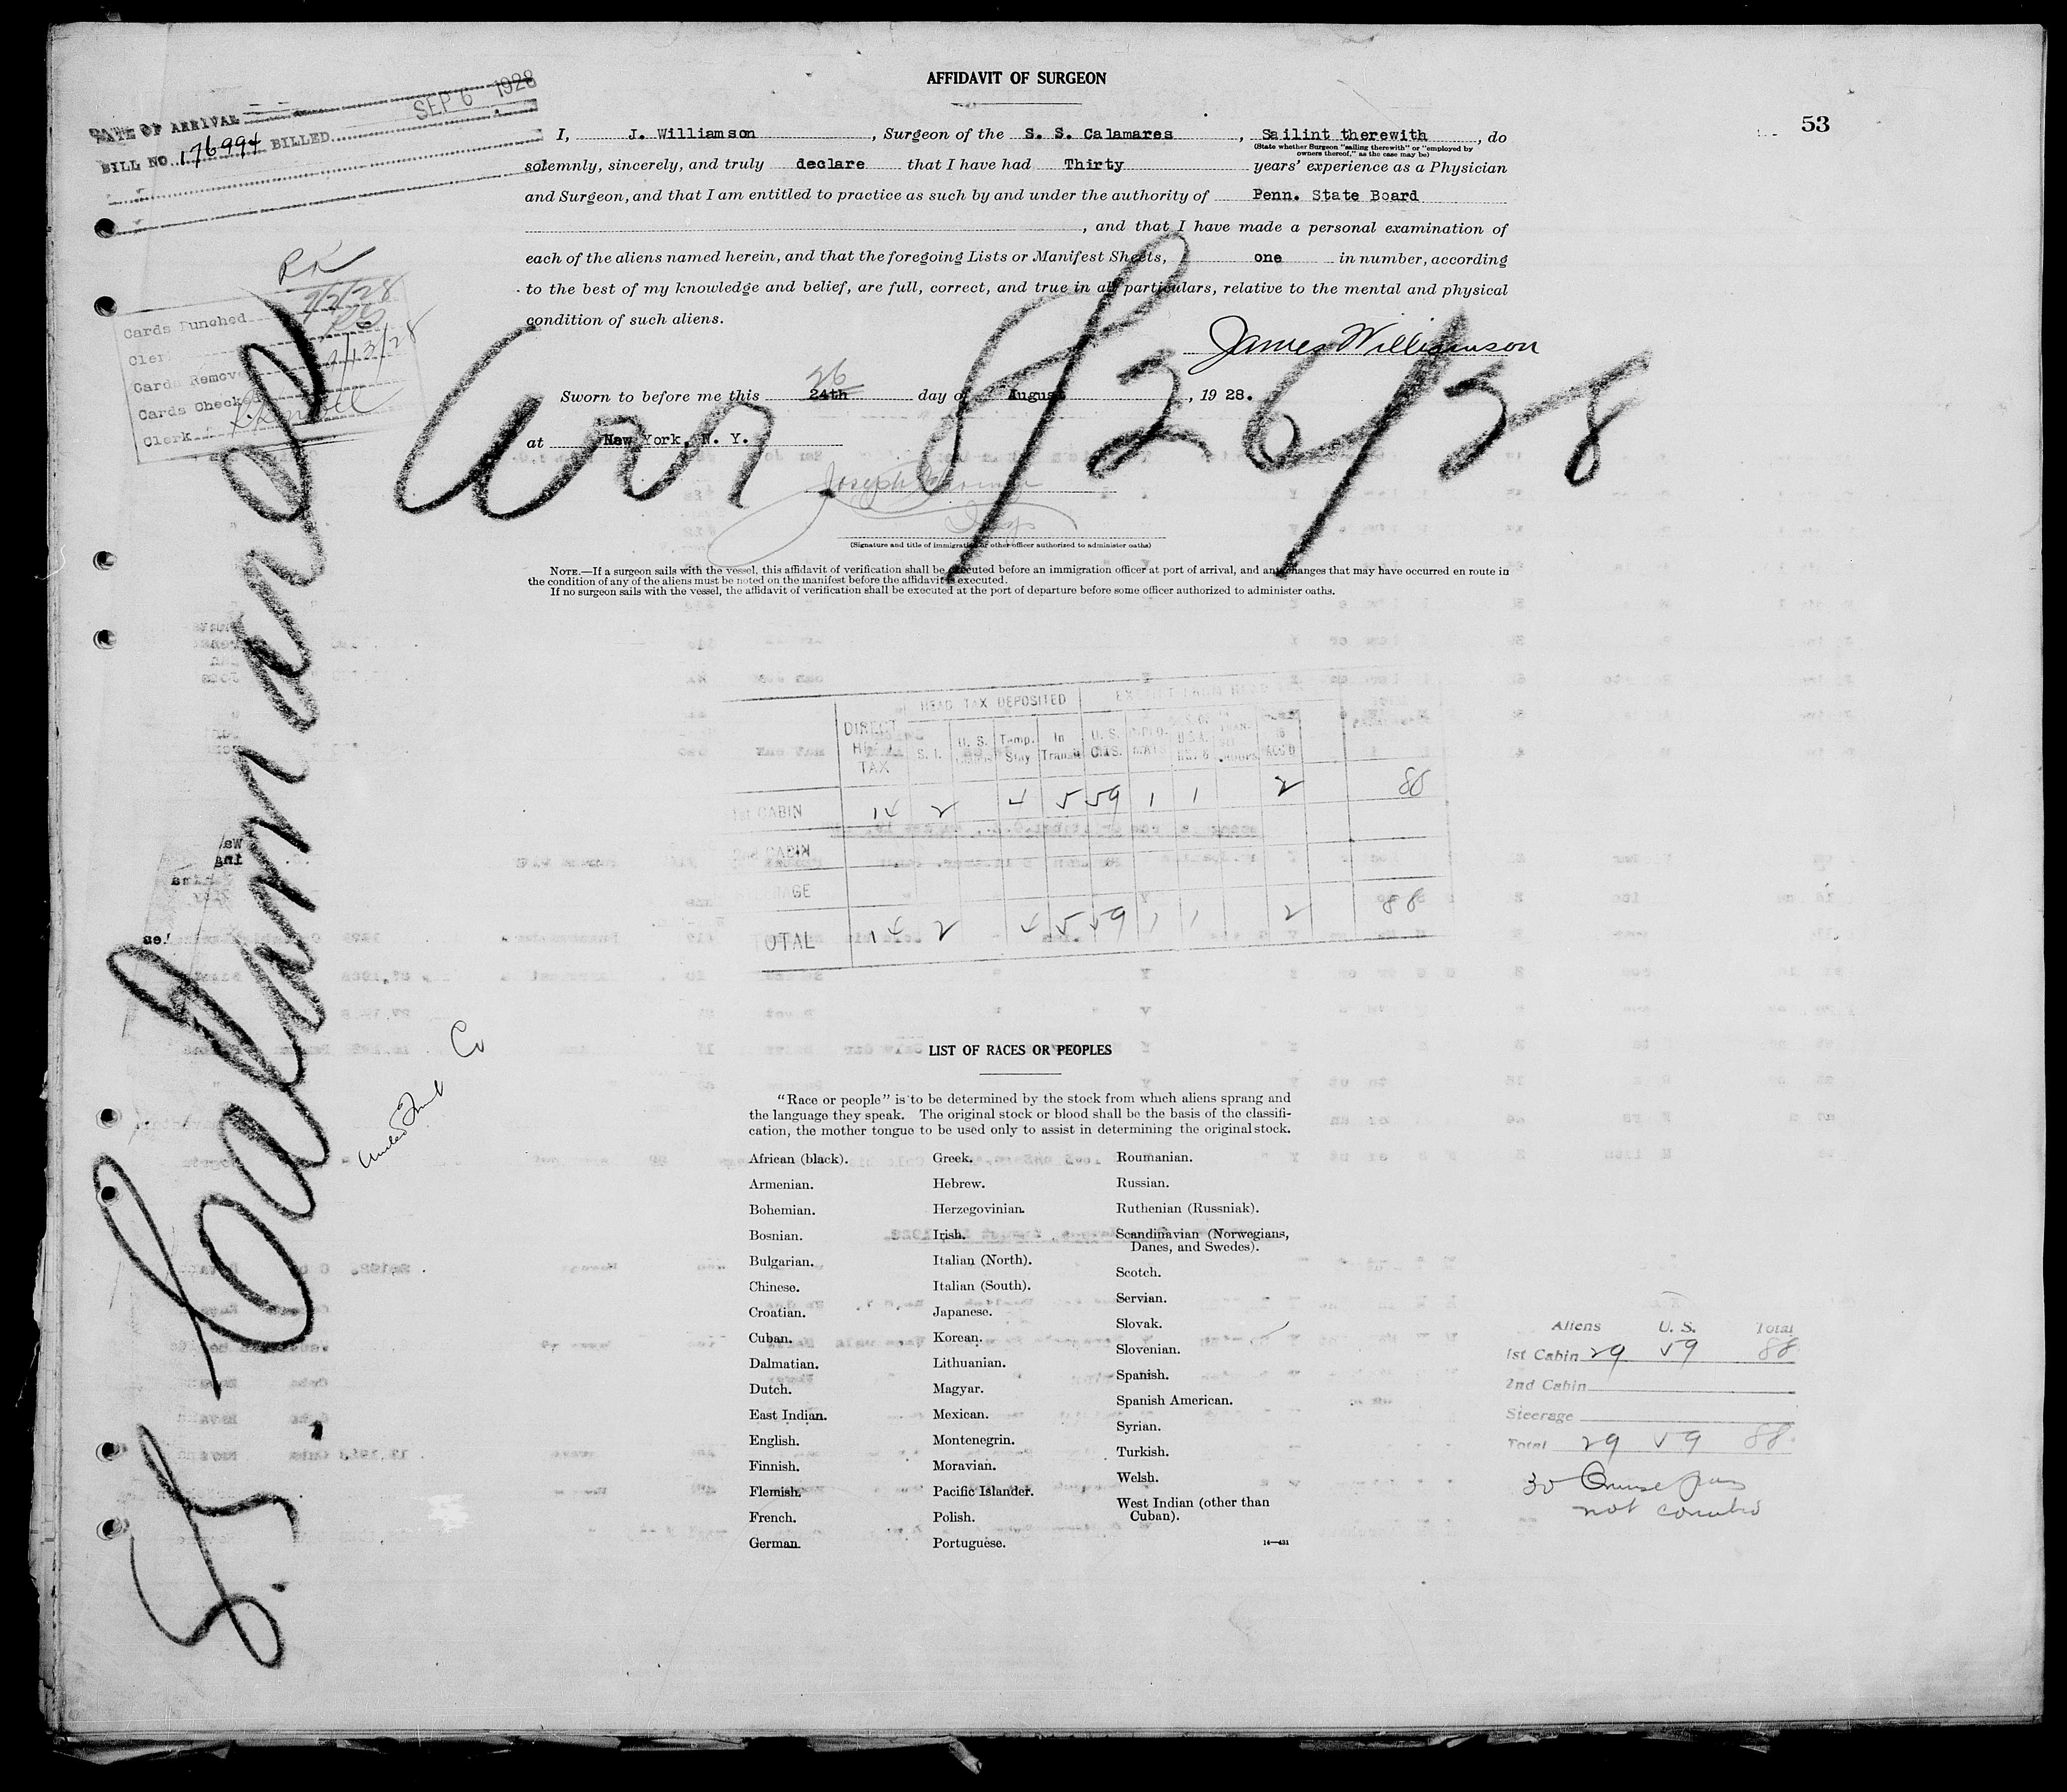 AFFIDAVIT OF SURGEON
53
DATE OF ARRIVAL
SEP 6 1928
BILL NO. 176994 BILLED
I, J. Williamson, Surgeon of the S. S. Calamares, Sailint therewith, do
(State whether Surgeon "sailing therewith" or "employed by
owners thereof," as the case may be)
solemnly, sincerely, and truly declare that I have had Thirty years' experience as a Physician
and Surgeon, and that I am entitled to practice as such by and under the authority of Penn. State Board
, and that I have made a personal examination of
each of the aliens named herein, and that the foregoing Lists or Manifest Sheets, one in number, according
to the best of my knowledge and belief, are full, correct, and true in all particulars, relative to the mental and physical
condition of such aliens.
James Williamson
Cards Punched
Clerk
Cards Removed
Cards Checked
Clerk
26
Sworn to before me this 24th day of August, 1928.
at New York, N. Y.
Arr 8/26/28
(Signature and title of immigration or other officer authorized to administer oaths)
NOTE.—If a surgeon sails with the vessel, this affidavit of verification shall be executed before an immigration officer at port of arrival, and any changes that may have occurred en route in
the condition of any of the aliens must be noted on the manifest before the affidavit is executed.
If no surgeon sails with the vessel, the affidavit of verification shall be executed at the port of departure before some officer authorized to administer oaths.
S.S. Calamares
United Fruit Co
HEAD TAX DEPOSITED EXEMPT FROM HEAD TAX
DIRECT HEAD TAX S. I. U. S. Temp. Stay In Transit U. S. Cits.
1st CABIN 14 2 4 5 59 1 1 2 88
2nd CABIN
STEERAGE
TOTAL 14 2 4 5 59 1 1 2 88
LIST OF RACES OR PEOPLES
"Race or people" is to be determined by the stock from which aliens sprang and
the language they speak. The original stock or blood shall be the basis of the classifi-
cation, the mother tongue to be used only to assist in determining the original stock.
African (black).
Armenian.
Bohemian.
Bosnian.
Bulgarian.
Chinese.
Croatian.
Cuban.
Dalmatian.
Dutch.
East Indian.
English.
Finnish.
Flemish.
French.
German.
Greek.
Hebrew.
Herzegovinian.
Irish.
Italian (North).
Italian (South).
Japanese.
Korean.
Lithuanian.
Magyar.
Mexican.
Montenegrin.
Moravian.
Pacific Islander.
Polish.
Portuguese.
Roumanian.
Russian.
Ruthenian (Russniak).
Scandinavian (Norwegians,
Danes, and Swedes).
Scotch.
Servian.
Slovak.
Slovenian.
Spanish.
Spanish American.
Syrian.
Turkish.
Welsh.
West Indian (other than
Cuban).
14—431
Aliens U. S. Total
1st Cabin 29 59 88
2nd Cabin
Steerage
Total 29 59 88
30 Cruise pass
not counted